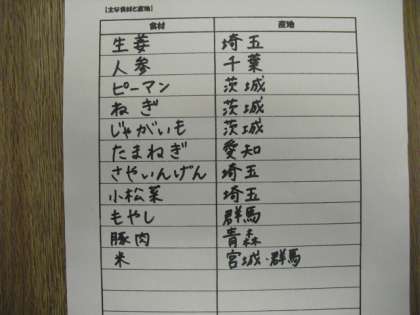 【主な食材と産地】
食材 産地
生姜 埼玉
人参 千葉
ピーマン 茨城
ねぎ 茨城
じゃがいも 茨城
たまねぎ 愛知
さやいんげん 埼玉
小松菜 埼玉
もやし 群馬
豚肉 青森
米 宮城・群馬